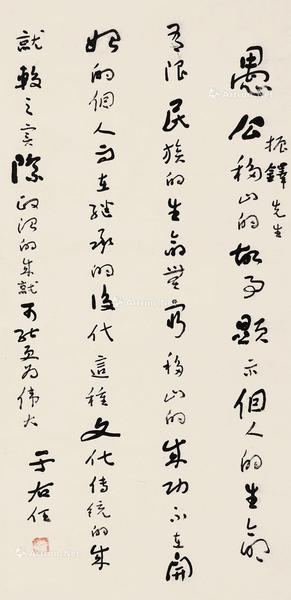 愚公移山的故事顯示個人的生命
有限民族的生命無窮移山的成功不在開
始的個人而在繼承的後代這種文化傳統的成
就較之實際政治的成就可能更為偉大
振鐸先生
于右任